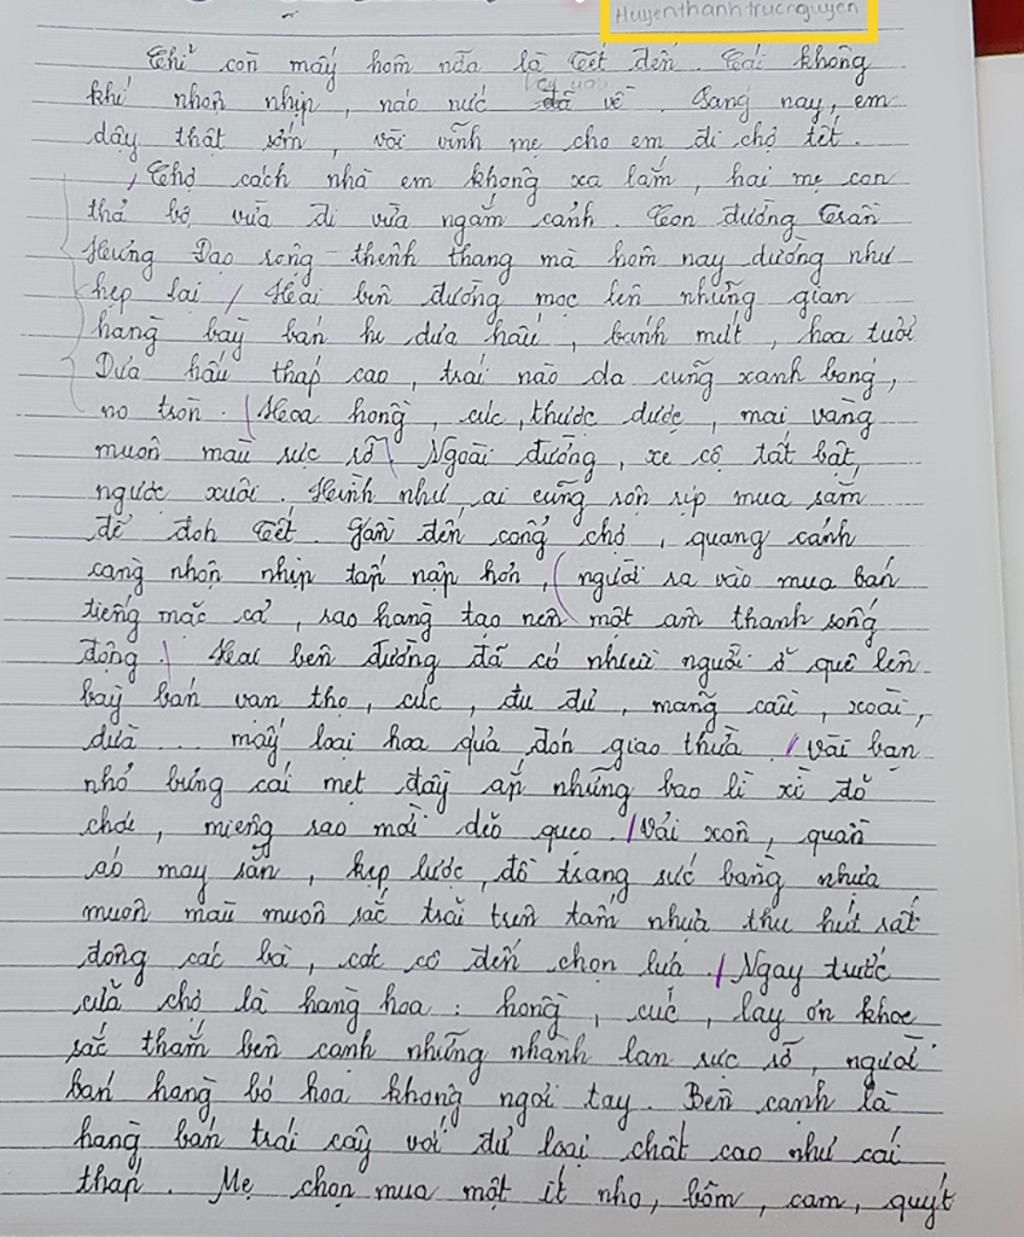 Huyenthanhtrucnguyen
Chỉ còn mấy hôm nữa là Tết đến. Cái không
khí nhộn nhịp, náo nức đã về. Sáng nay, em
dậy thật sớm, vòi vĩnh mẹ cho em đi chợ tết.
Chợ cách nhà em không xa lắm, hai mẹ con
thả bộ vừa đi vừa ngắm cảnh. Con đường Trần
Hưng Đạo rộng thênh thang mà hôm nay dường như
hẹp lại. Hai bên đường mọc lên những gian
hàng bày bán dưa hấu, bánh mứt, hoa tươi
Dưa hấu tháp cao, trái nào da cũng xanh bóng,
no tròn. Hoa hồng, cúc, thược dược, mai vàng
muôn màu rực rỡ. Ngoài đường, xe cộ tất bật,
ngược xuôi. Hình như ai cũng rộn rịp mua sắm
để đón Tết. Gần đến cổng chợ, quang cảnh
càng nhộn nhịp tấp nập hơn, người ra vào mua bán
tiếng mặc cả, rao hàng tạo nên một âm thanh sống
động. Hai bên đường đã có nhiều người ở quê lên
bày bán vạn thọ, cúc, đu đủ, mãng cầu, xoài,
dừa... mấy loại hoa quả đón giao thừa. Vài bạn
nhỏ bưng cái mẹt đầy ắp những bao lì xì đỏ
chói, miệng rao mời dẻo quẹo. Vải xôn, quần
áo may sẵn, kẹp lược, đồ trang sức bằng nhựa
muôn màu muôn sắc trải trên tấm nhựa thu hút rất
đông các bà, các cô đến chọn lựa. Ngay trước
cửa chợ là hàng hoa: hồng, cúc, lay ơn khoe
sắc thắm bên cạnh những nhành lan rực rỡ, người
bán hàng bó hoa không ngơi tay. Bên cạnh là
hàng bán trái cây với đủ loại chất cao như cái
tháp. Mẹ chọn mua một ít nho, bôm, cam, quýt